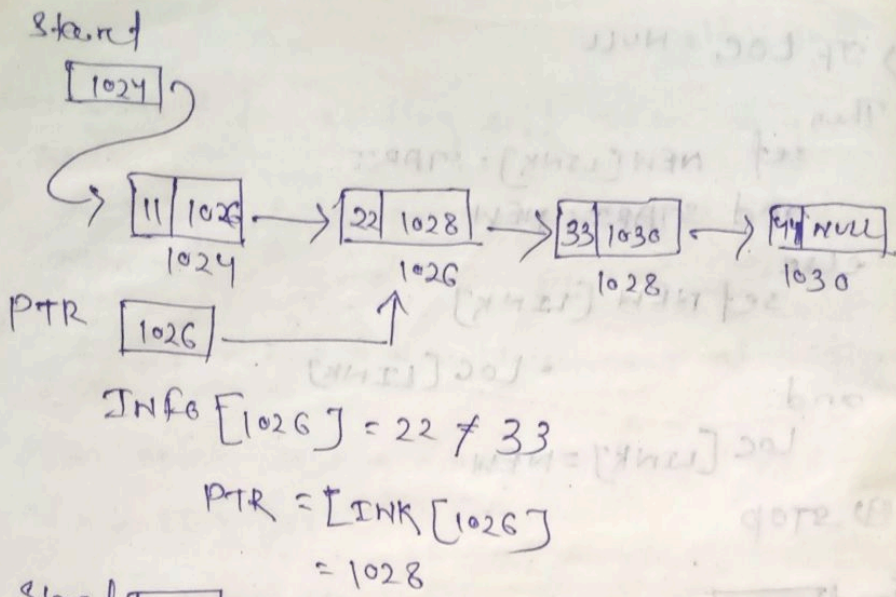 Start
1024
11 1026 22 1028 33 1030 44 NULL
1024 1026 1028 1030
PTR 1026
INFO [1026] = 22 ≠ 33
PTR = LINK [1026]
= 1028
Start